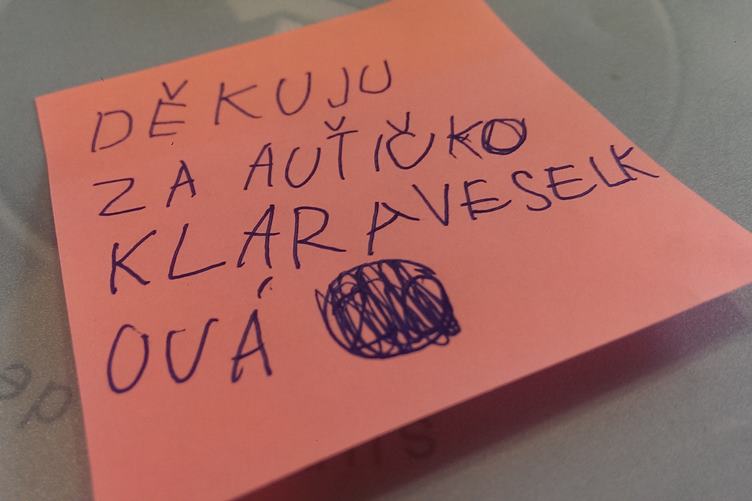 DĚKUJU
ZA AUŤIČKO
KLARA VESELK
OVÁ